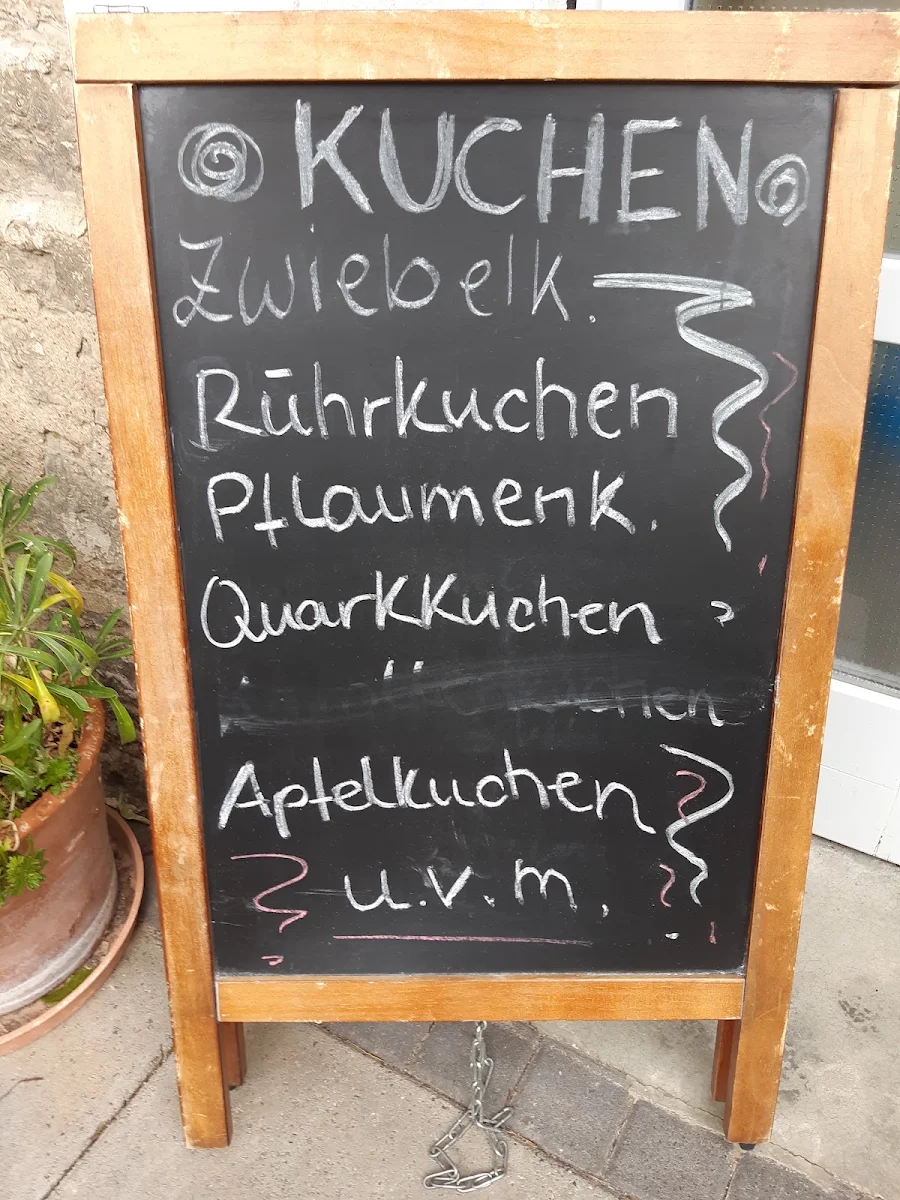 KUCHEN
Zwiebelk.
Rührkuchen
Pflaumenk.
Quarkkuchen
Apfelkuchen
u.v.m.